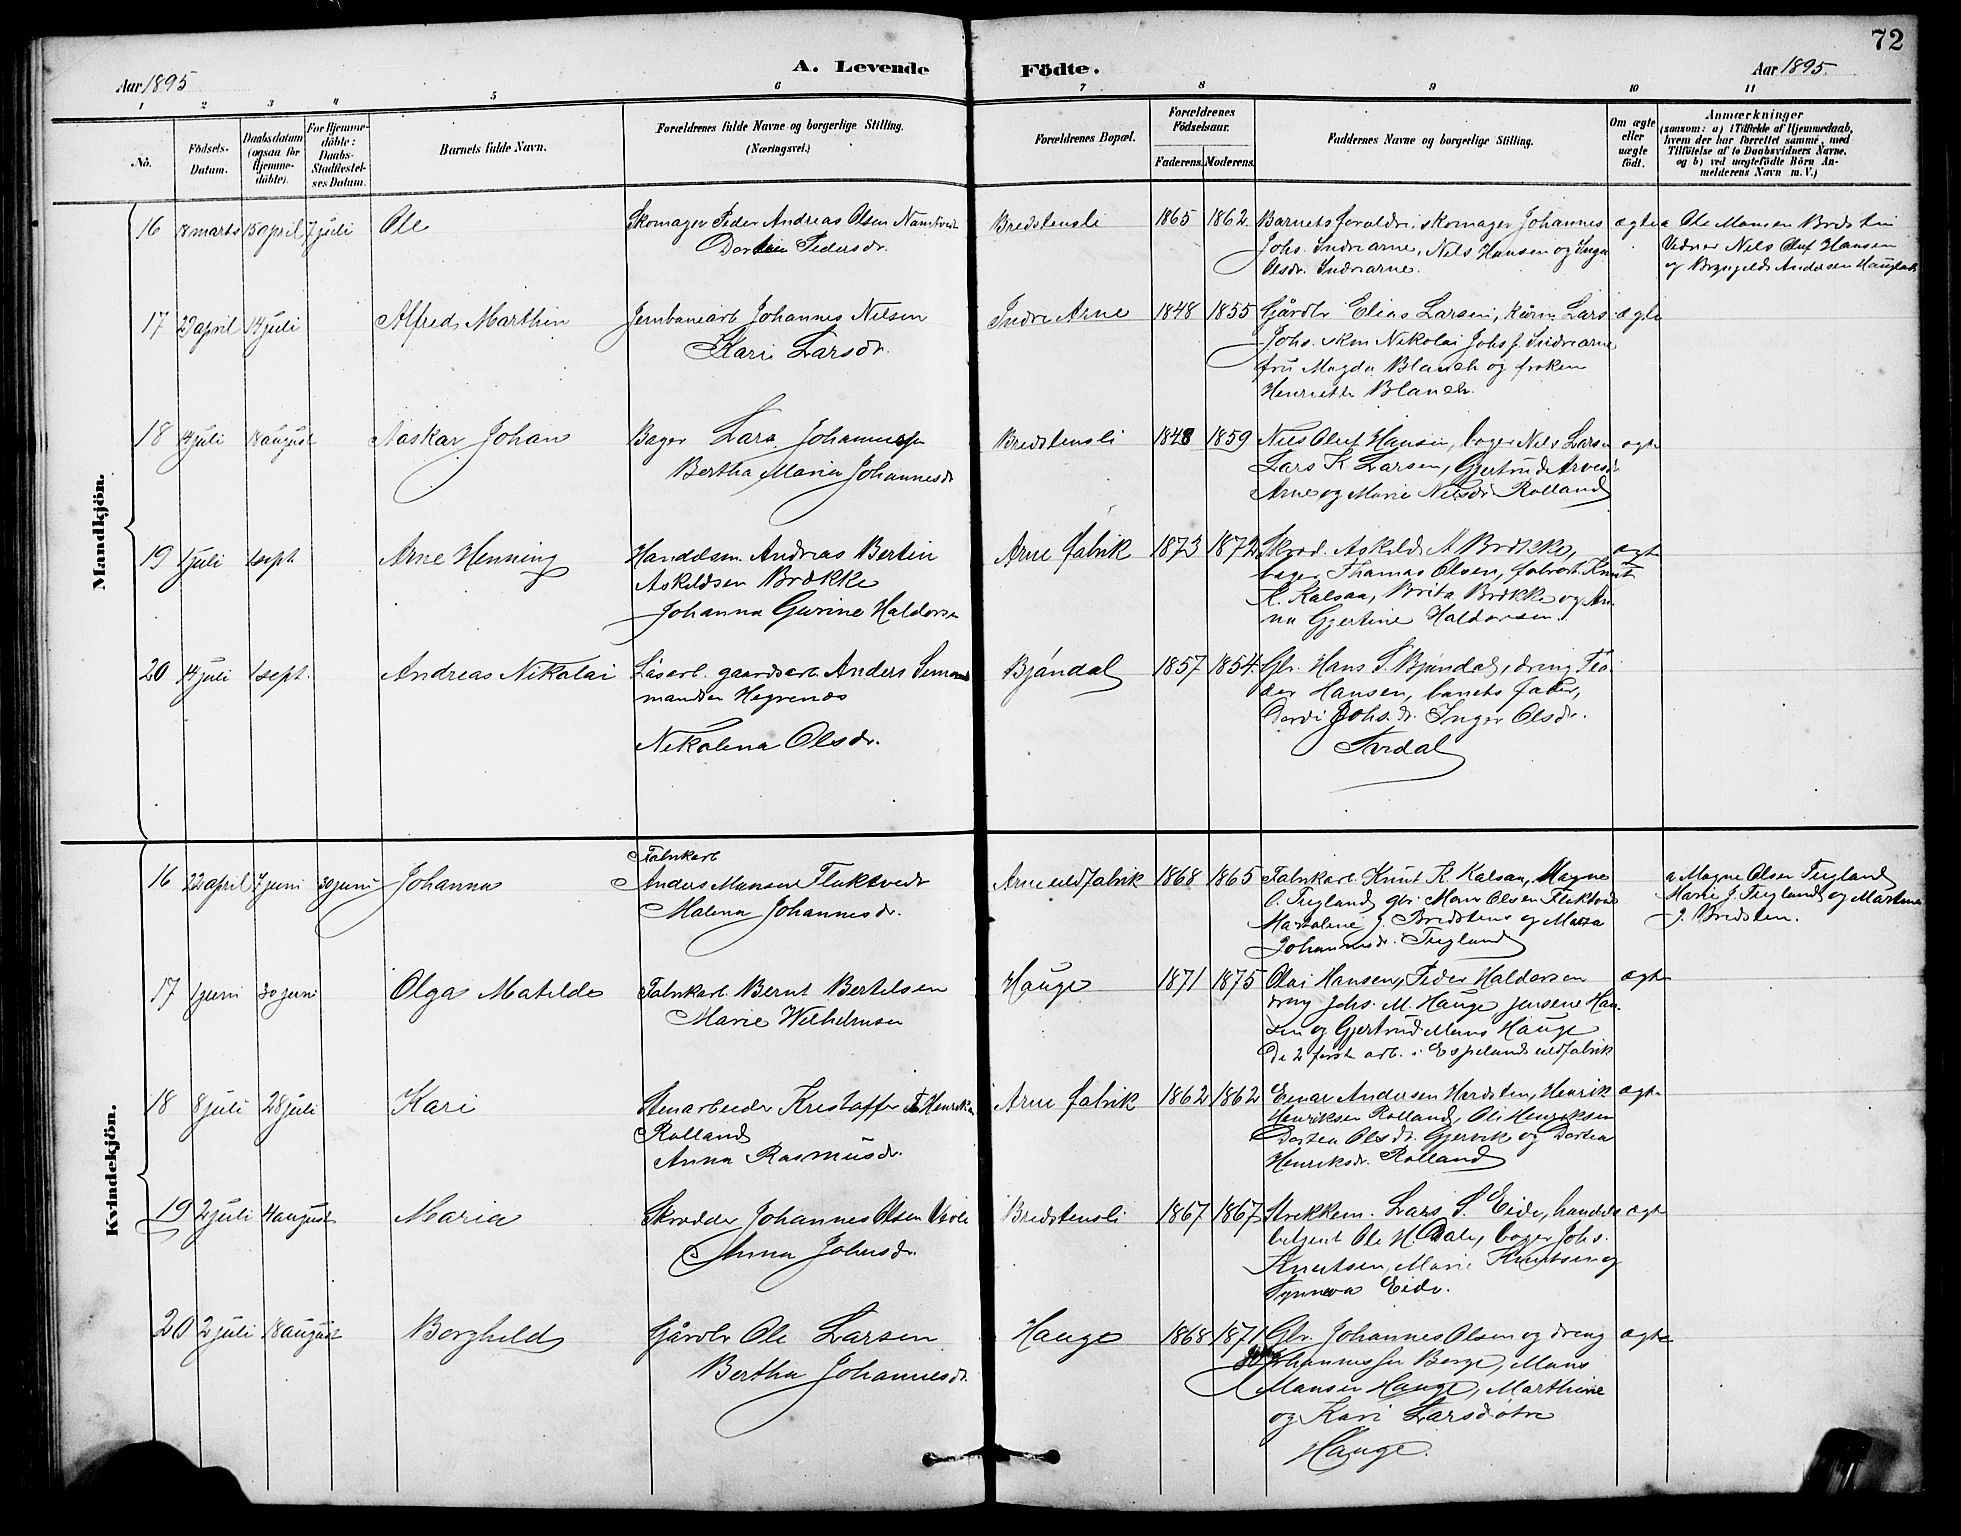 72
Aar 1895
A. Levende
Födte.
Aar 1895.
1 2 3 4 5 6 7 8 9 10 11
No.
Födsels-
Datum.
Daabsdatum
(ogsaa for
Hjemme-
döbte).
For Hjemme-
döbte:
Daabs-
Stadfæstel-
ses Datum.
Barnets fulde Navn.
Forældrenes fulde Navne og borgerlige Stilling.
(Næringsvei.)
Forældrenes Bopæl.
Forældrenes
Födselsaar.
Faderens. Moderens.
Faddernes Navne og borgerlige Stilling.
Om ægte
eller
uægte
födt.
Anmærkninger
(saasom: a) i Tilfælde af Hjemmedaab,
hvem der har forrettet samme, med
Tilföielse af to Daabsvidners Navne,
og b) ved uægtefödte Börn An-
melderens Navn m. V.)
Mandkjön.
16 8 marts 15 april 7 juli Ole
Skomager Peder Andreas Olsen
Dortea Pedersdr.
Bredstensli 1865 1862
Barnets forældre, skomager Johannes
Johs. Indrearne, Nels Hansen og Inga
Olsdr. Indrearne.
ægte
a Ole Monsen Bredsten
Vidner Nels Oluf Hansen
og Brynjulf Andersen Haugland
17 29 april 14 juli Alfred Marthin
Jernbanearb Johannes Nilsen
Kari Larsdr.
Indre Arne 1848 1855
Gårdbr Elias Larsen, Lars
Johs. Nikolai Johs. Indrearne,
fru Magda Blauch og frøken
Henriette Blauch.
ægte
18 14 juli 18 august Aaskar Johan
Bager Lars Johannesen
Bertha Maria Johannesdr
Bredstensli 1848 1859
Nils Oluf Hansen, bager Nels Larsen
Lars K. Larsen, Gjertrud Arvesdr
Arne og Marie Nilsdr Rolland
ægte
19 1 juli 1 sept. Arne Henning
Handelsm. Andreas Bertin
Askeldsen Brække
Johanna Gurine Haldorsen
Arne fabrik 1873 1872
Skræd. Askeld A Brække,
bager Thomas Olsen, fabrarb. Knut
K. Kalsaa, Brita Brække og An-
na Gjertine Haldorsen.
ægte
20 14 juli 1 sept. Andreas Nikolai
Løsarb. gaardsarb. Anders
Hegrenæs
Nikolina Olsdr.
Bjøndal 1857 1854
Gbr. Hans S. Bjøndal, dreng Pe-
der Hansen, barnets fader,
Dordi Johs.dr. Inger Olsdr.
Kvindekjön.
16 22 april 7 juni 30 juni Johanna
Fabrikarb
Anders Monsen Flaktvedt
Malena Johannesdr.
Arne uldfabrik 1868 1865
Fabrikarb. Knut K. Kalsaa, Magne
O. Tregland, gbr. Mons Olsen Flaktvedt
J. Bredsten og Marta
Johannesdr. Tregland
a Magne Olsen Tregland
Marie J. Tregland og Martine
J. Bredsten.
17 1 juni 30 juni Olga Matilde
Fabrikarb. Bernt Bertelsen
Marie Wilhelmsen
Hauge 1871 1875
Olai Hansen, Peder Haldorsen
dreng Johs. M. Hauge, Jensene Han-
sen og Gjertrud Mons Hauge
De 2 første arb. i Espelands uldfabrik
ægte
18 8 juli 28 juli Kari
Stenarbeider Kristoffer Henriksen
Rolland
Anna Rasmusdr.
Arne fabrik 1862 1862
Einar Andersen Herdsten, Henrik
Henriksen Rolland, Ole Henriksen
Dortea Olsdr. Gjervik og Dortea
Henriksdr. Rolland
ægte
19 2 juli 4 august Maria
Skrædder Johannes Olsen
Anna Johnsdr.
Bredstensli 1867 1867
Strekkem. Lars S. Eide, handels
betjent Ole M. Dale, bager Johs.
Knutsen, Marie Knutsen og
Synneva Eide.
ægte
20 2 juli 18 august Borghild
Gårdbr Ole Larsen
Bertha Johannesdr.
Hauge 1868 1871
Gbr. Johannes Olsen og dreng
Johannessen Borge, Mons
Monsen Hauge, Marthine
og Kari Larsdøtre
Hauge.
ægte